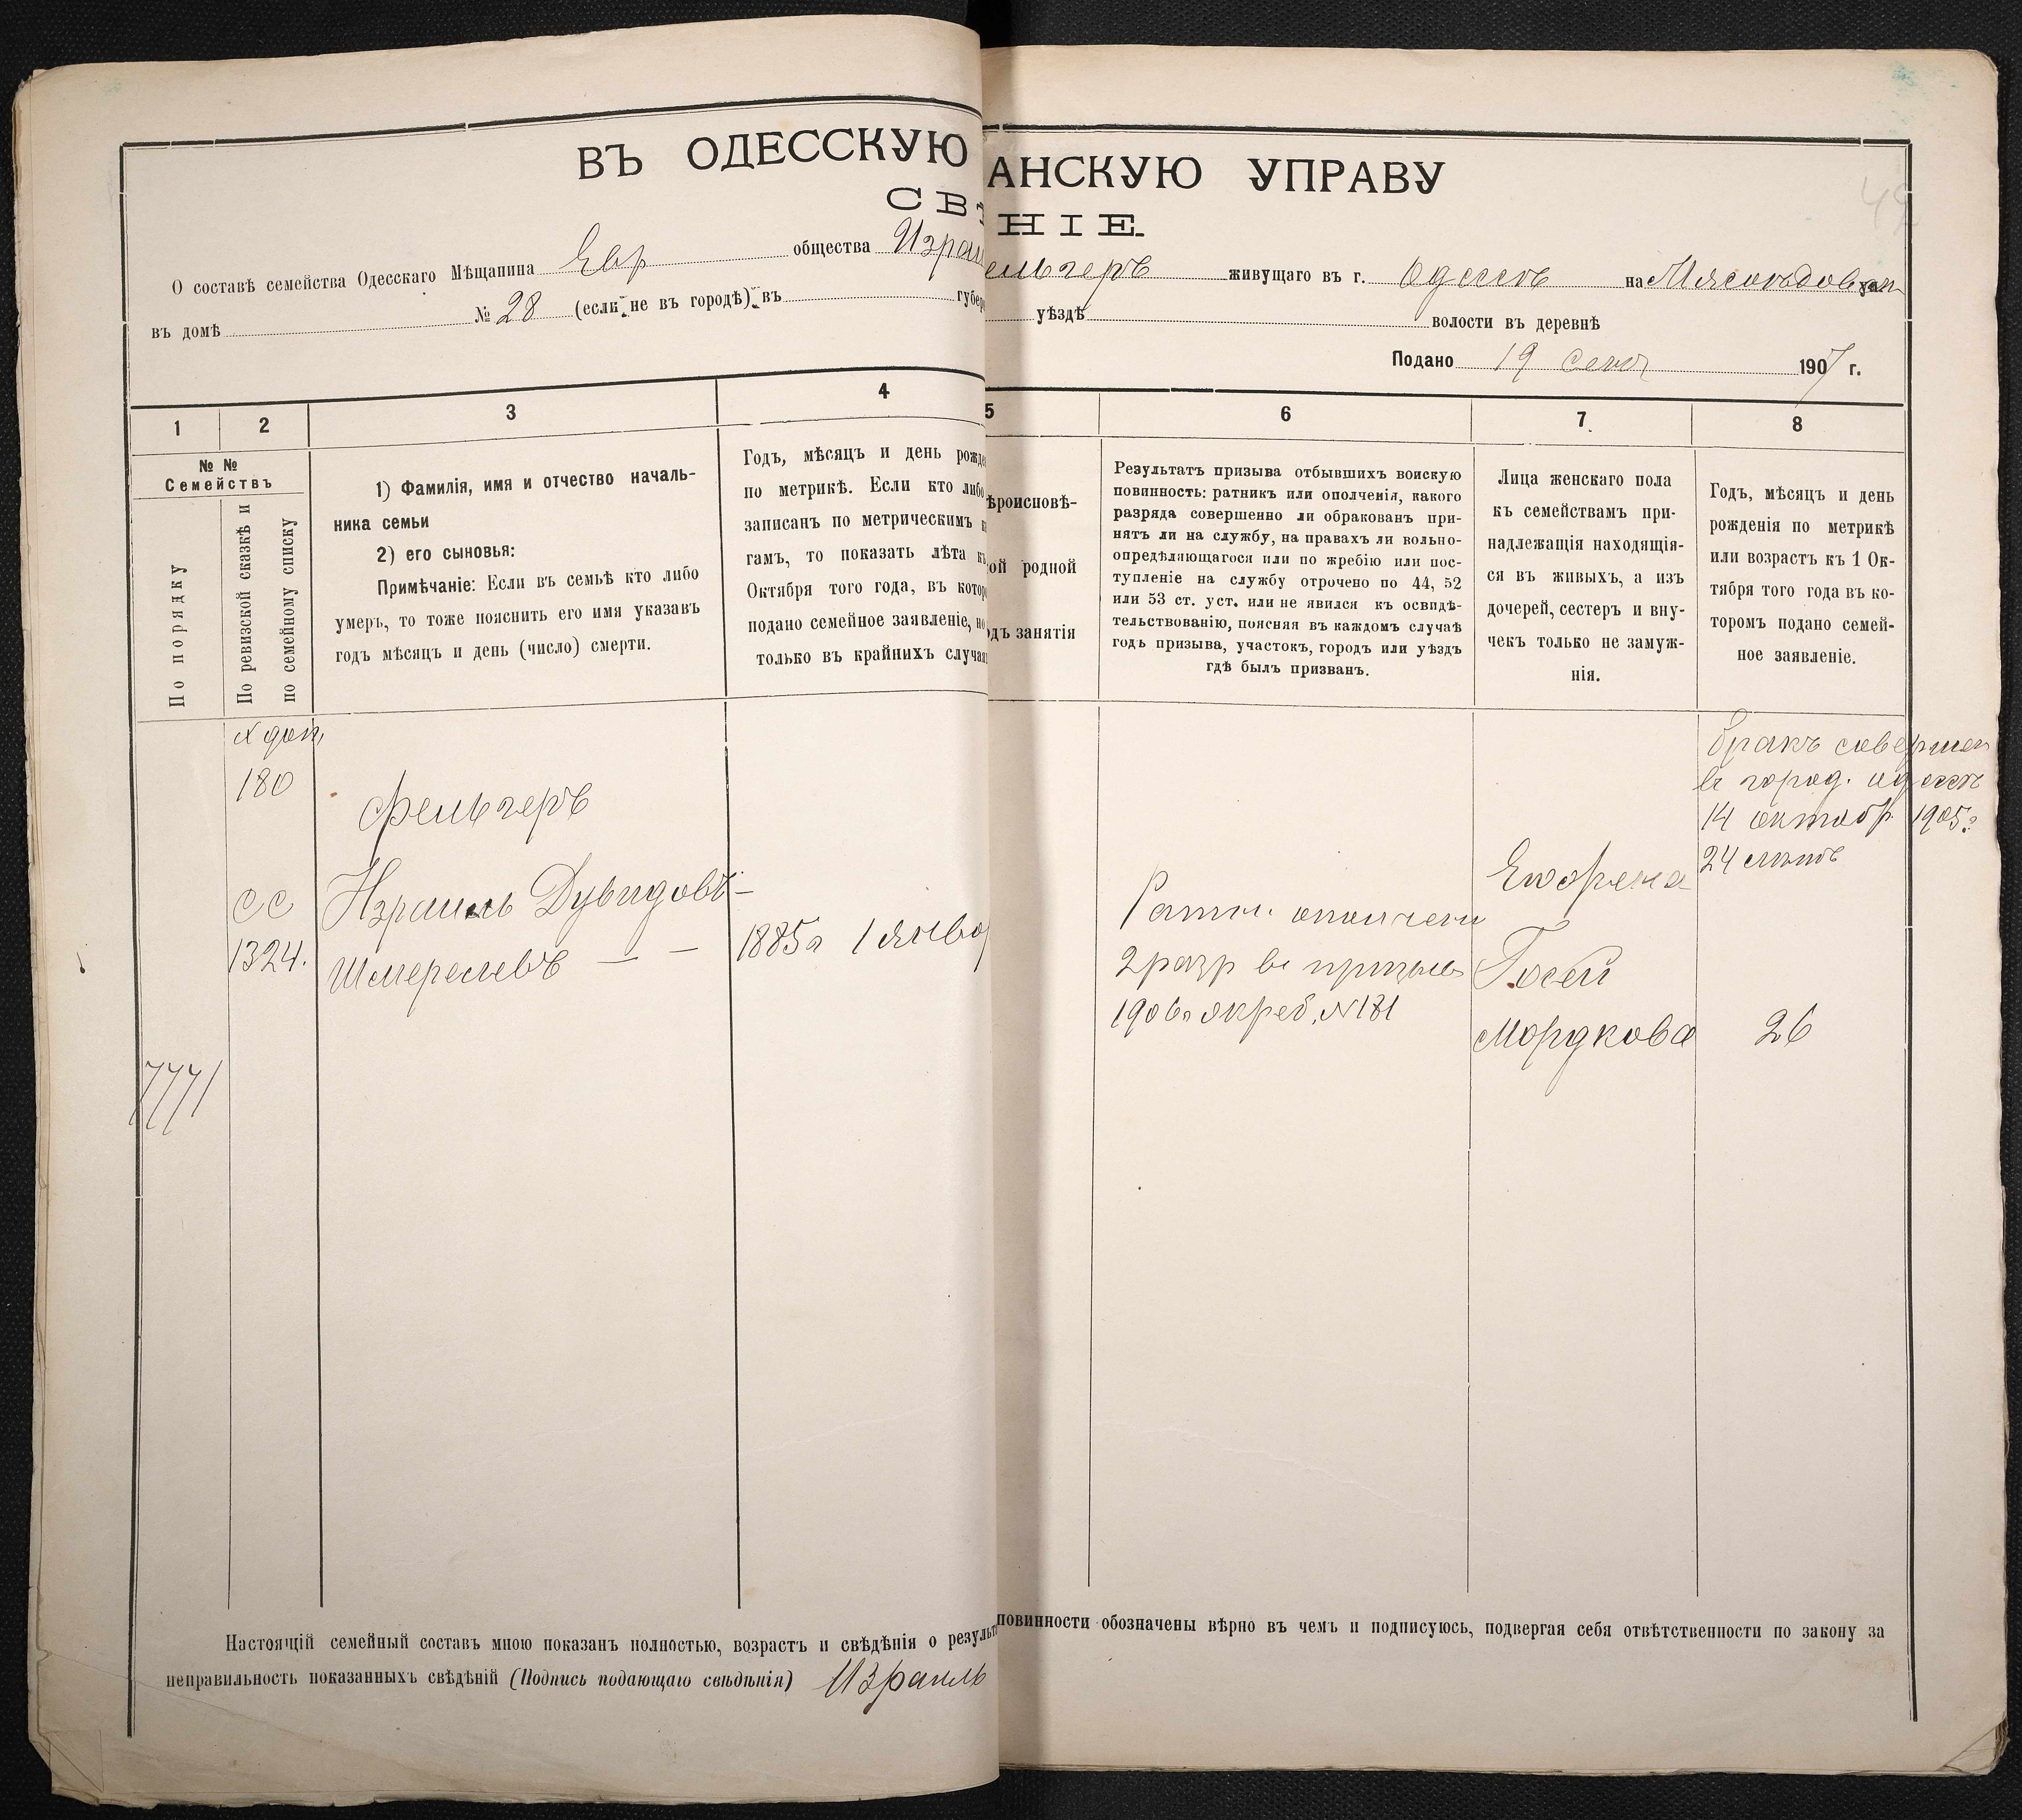 ВЪ ОДЕССКУЮ АНСКУЮ УПРАВУ
СВѢ НІЕ.
О составѣ семейства Одесскаго Мѣщанина Евр общества Израи ельгеръ живущаго въ г. Одессѣ на Мясоѣдовск ул
въ домѣ № 28 (если не въ городѣ) въ губер уѣздѣ волости въ деревнѣ
Подано 19 сент 1907 г.
1 2 3 4 5 6 7. 8
№ №
Семействъ
По порядку
По ревизской сказкѣ и
по семейному списку
1) Фамилія, имя и отчество началь-
ника семьи
2) его сыновья:
Примѣчаніе: Если въ семьѣ кто либо
умеръ, то тоже пояснить его имя указавъ
годъ мѣсяцъ и день (число) смерти.
Годъ, мѣсяцъ и день рожде
по метрикѣ. Если кто либо
записанъ по метрическимъ к
гамъ, то показать лѣта къ
Октября того года, въ котор
подано семейное заявленіе, но
только въ крайнихъ случая
ѣроисповѣ-
ой родной
одъ занятія
Результатъ призыва отбывшихъ воискую
повинность: ратникъ или ополченія, какого
разряда совершенно ли обракованъ при-
нятъ ли на службу, на правахъ ли вольно-
опредѣляющагося или по жребію или пос-
тупленіе на службу отрочено по 44, 52
или 53 ст. уст. или не явился къ освидѣ-
тельствованію, поясняя въ каждомъ случаѣ
годъ призыва, участокъ, городъ или уѣздъ
гдѣ былъ призванъ.
Лица женскаго пола
къ семействамъ при-
надлежащія находящія-
ся въ живыхъ, а изъ
дочерей, сестеръ и вну-
чекъ только не замуж-
нія.
Годъ, мѣсяцъ и день
рожденія по метрикѣ
или возрастъ къ 1 Ок-
тября того года въ ко-
торомъ подано семей-
ное заявленіе.
доп,
180
Фельгеръ
сс
1324.
Израиль Дувидовъ-
Шмерелевъ — —
1885г 1 янва
7771
Ратн. ополчени
2 разр въ призыв
1906г жреб. №181
Его жена
Госей
Мордкова
бракъ совершен
въ город. Одессѣ
14 октябр 1905г
24 лѣтъ
26
Настоящій семейный составъ мною показанъ полностью, возрастъ и свѣдѣнія о результа повинности обозначены вѣрно въ чемъ и подписуюсь, подвергая себя отвѣтственности по закону за
неправильность показанныхъ свѣдѣній (Подпись подающаго свѣдѣнія) Израиль